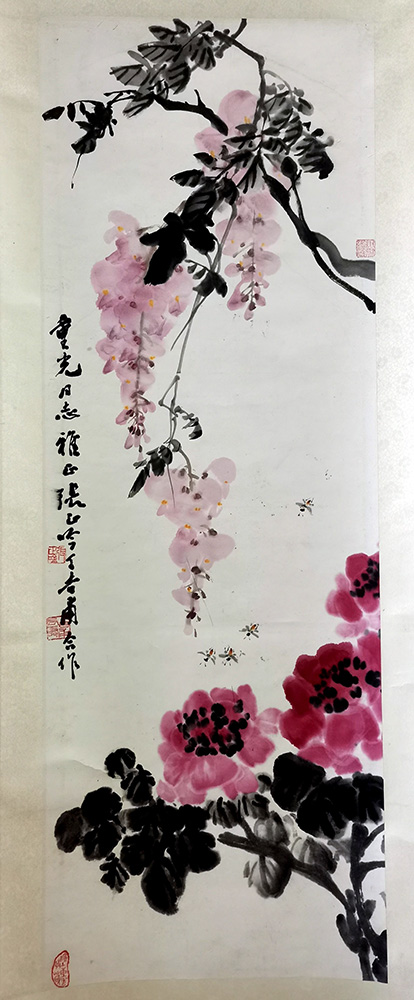 重光同志雅正張正吟丁吉甫合作